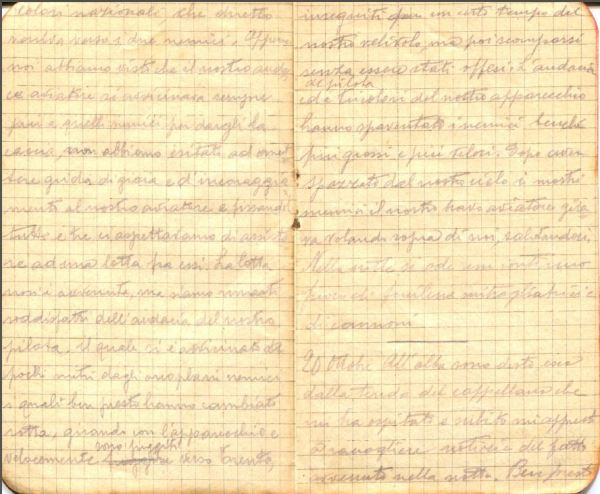 colori nazionali che diretto
veniva verso i due nemici. Appena
noi abbiamo visti che il nostro auda
ce aviatore si avvicinava sempre
più a quelli nemici per dargli la
caccia, non abbiamo esitati ad emet
tere grida di gioia e d'incoraggia
mento al nostro aviatore
tutto e tre ci aspettavamo di assiste
re ad una lotta fra essi. La lotta
non è avvenuta, ma siamo rimasti
soddisfatti dell'audacia del nostro
pilota, il quale si è avvicinato a
pochi metri dagli aeroplani nemici
i quali ben presto hanno cambiato
rotta, quando con l'apparecchio e
sono fuggiti
velocemente verso Trento,
inseguiti per un certo tempo dal
nostro velivolo, ma poi scomparsi
senza essere stati offesi. L'audacia
del pilota
ed i tricolori del nostro apparecchio
hanno spaventato i nemici benché
più grossi e più veloci. Dopo aver
spazzato dal nostro cielo i nostri
nemici il nostro bravo aviatore gira
va volando sopra di noi, salutandoci.
Nella notte si ode un continuo
fuoco di fucileria mitragliatrici e
di cannoni
20 Ottobre All'alba sono desto, esco
dalla tenda del cappellano che
mi ha ospitato e subito mi appresto
a raccogliere notizie del fatto
avvenuto nella notte. Ben presto